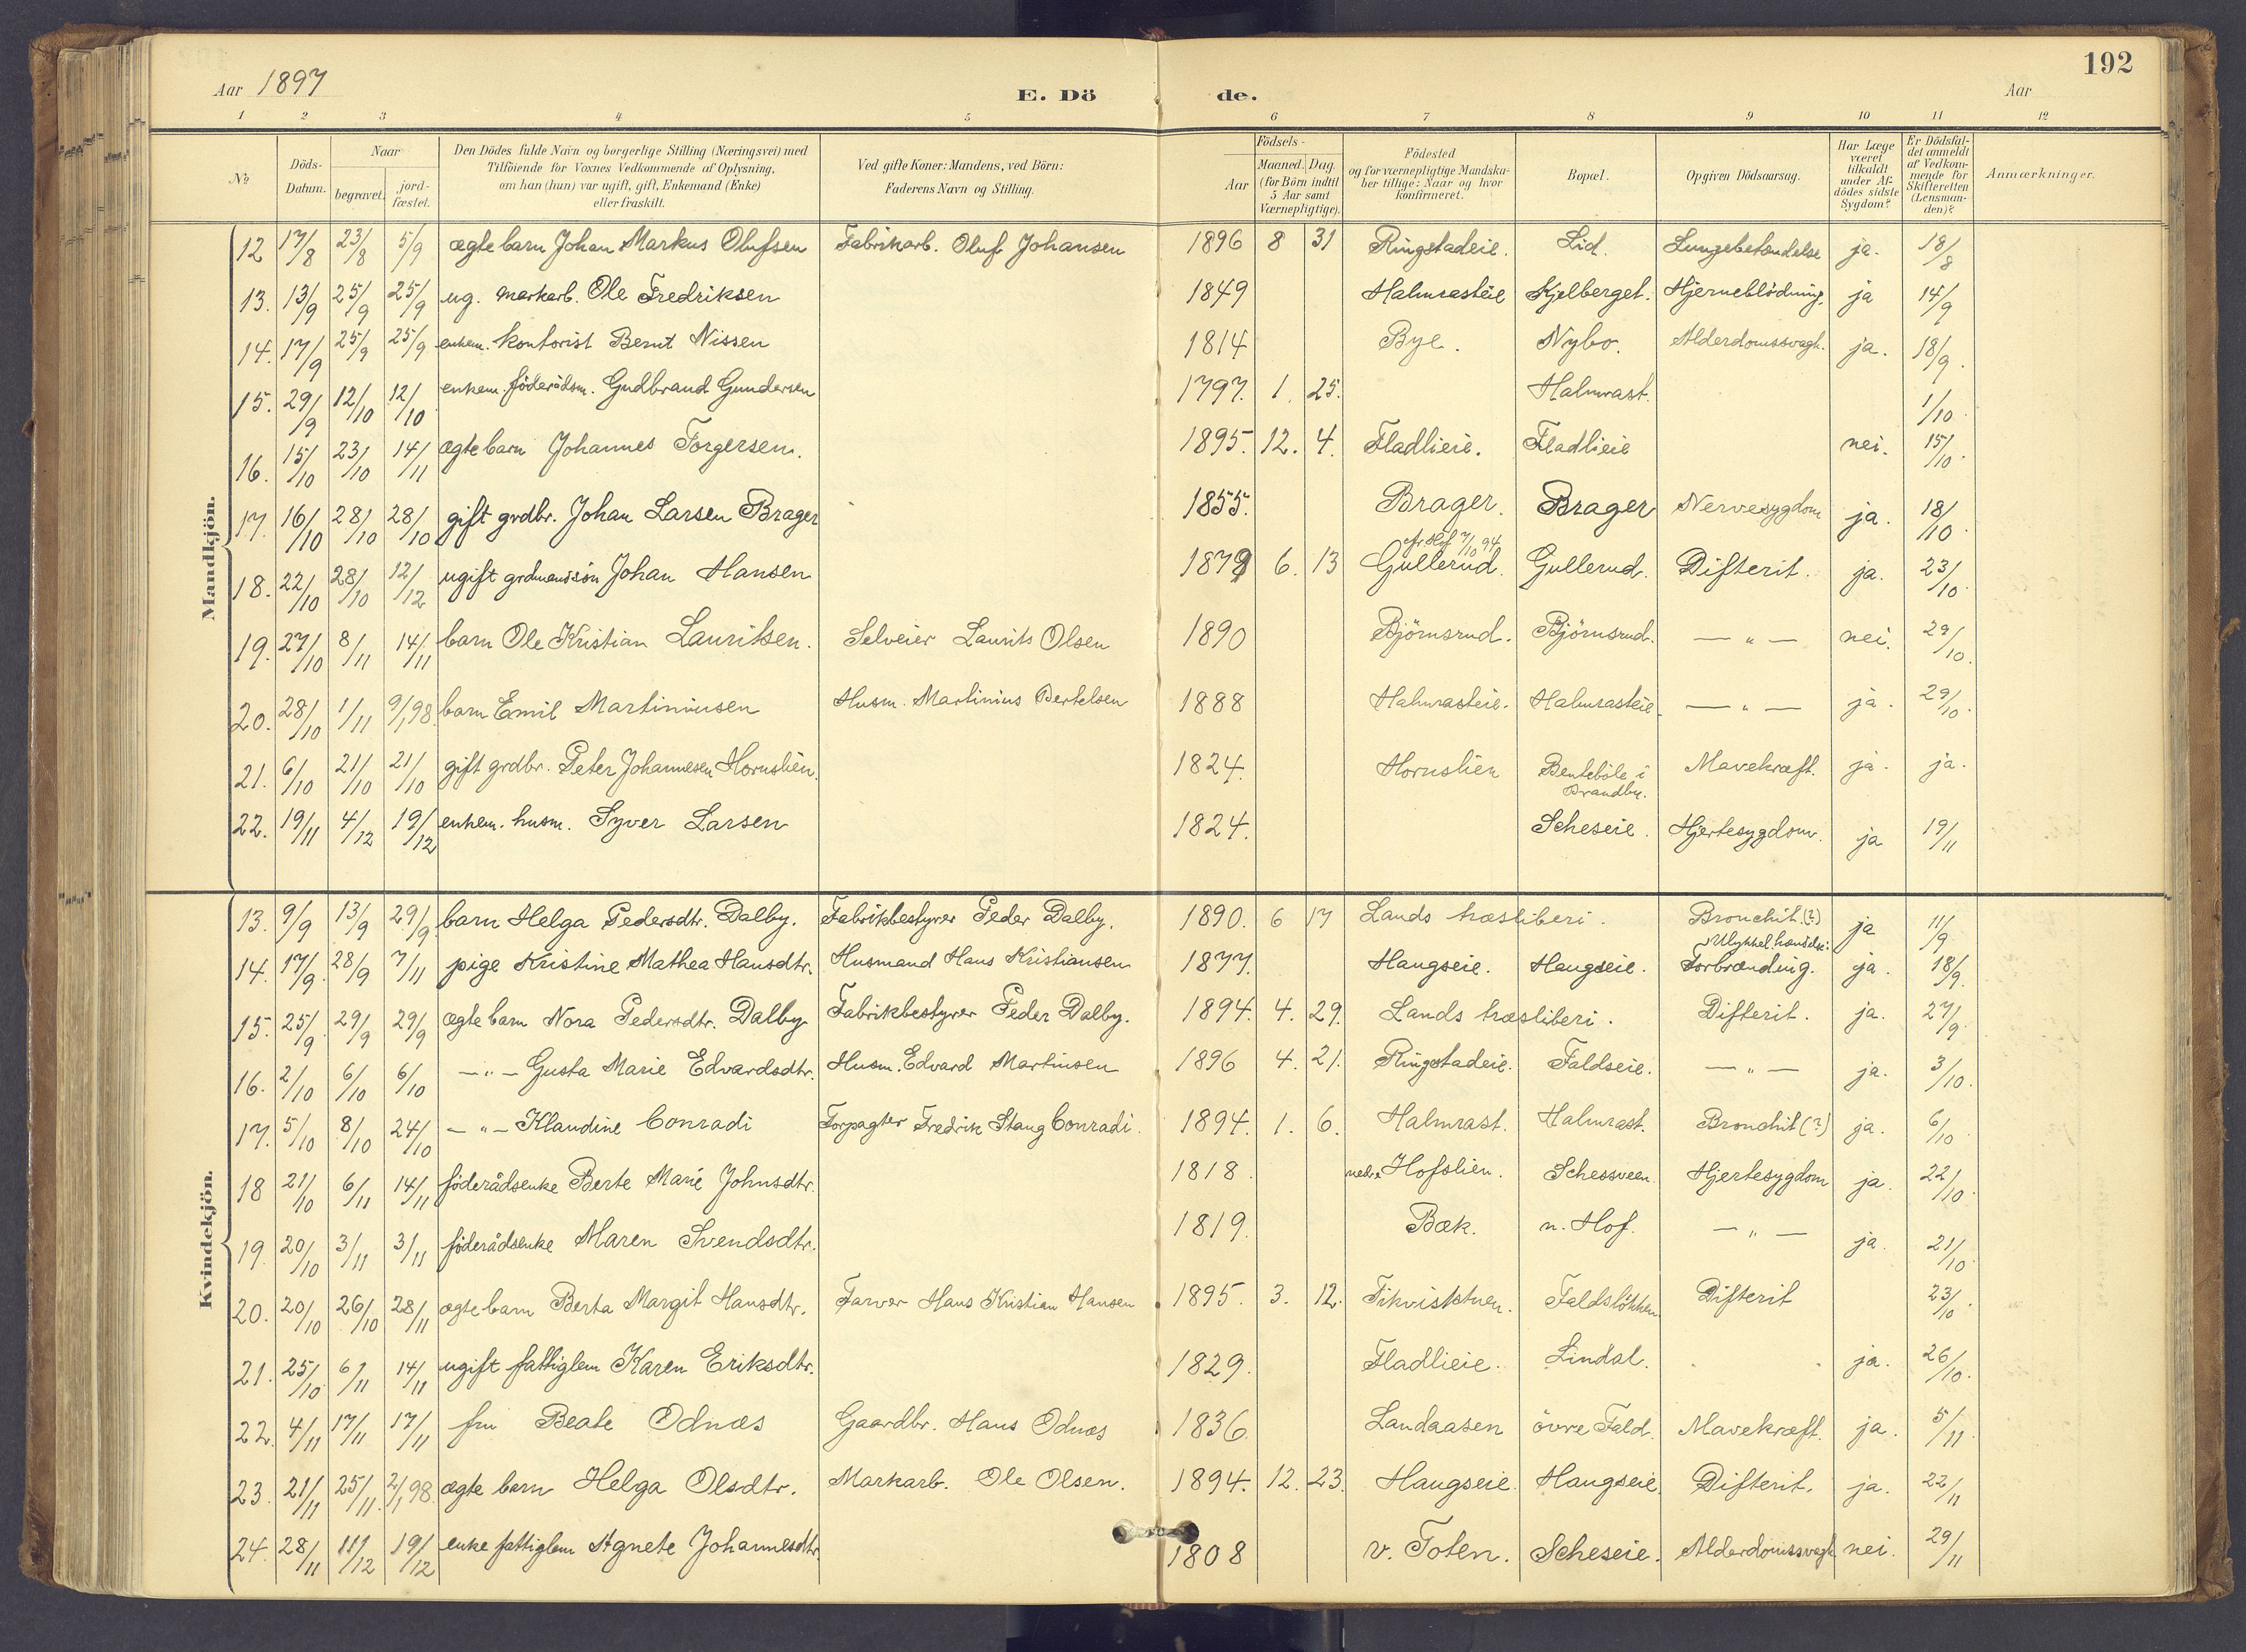 192
Aar 1897 E. Dö de. Aar
1 2 3 4 5 6 7 8 9 10 11 12
No
Döds-Datum.
Naar
begravet.
jordfæstet.
Den Dödes fulde Navn og borgerlige Stilling (Næringsvei) med
Tilföiende for Voxnes Vedkommende af Oplysning,
om han (hun) var ugift, gift, Enkemand (Enke)
eller fraskilt.
Ved gifte Koner: Mandens, ved Börn:
Faderens Navn og Stilling.
Födsels-
Aar
Maaned. Dag.
(for Börn indtil
5 Aar samt
Værnepligtige).
Födested
og for værnepligtige Mandskaber tillige: Naar og hvor
konfirmeret.
Bopæl.
Opgiven Dödsaarsag.
Har Læge
været
tilkaldt
under Afdödes sidste
Sygdom?
Er Dödsfaldet anmeldt
af Vedkommende for
Skifteretten
(Lensmanden)?
Anmærkninger.
Mandkjön.
12 17/8 23/8 5/9 ægte barn Johan Markus Olufsen Fabrikarb. Oluf Johansen 1896 8 31 Ringstadeie. Lid. Lungebetændelse ja. 18/8
13. 13/9 25/9 25/9 ug. markarb. Ole Fredriksen 1849 Halmrasteie Kjelberget. Hjerneblödning. ja 14/9
14. 17/9 25/9 25/9 enkem. kontorist Bernt Nissen 1814 Bye. Nybo. Alderdomssvagh. ja. 18/9.
15. 29/9 12/10 12/10 enkem. föderådsm. Gudbrand Gundersen 1797. 1. 25. Halmrast. 1/10.
16. 15/10 23/10 14/11 ægte barn Johannes Torgersen. 1895. 12. 4. Fladlieie. Fladlieie nei. 15/10.
17. 16/10 28/10 28/10 gift grdbr. Johan Larsen Brager 1855. Brager. Brager Nervesygdom ja. 18/10.
18. 22/10 28/10 12/12 ugift grdmandssön Johan Hansen 1879 6. 13 Gullerud. Gullerud. Difterit. ja. 23/10.
19. 27/10 8/11 14/11 barn Ole Kristian Lauritsen. Selveier Laurits Olsen 1890 Björnsrud. Björnsrud. — " — nei. 29/10.
20. 28/10 1/11 9/1 98. barn Emil Martiniusen Husm. Martinius Bertelsen 1888 Halmrasteie. Halmrasteie. — " — ja. 29/10.
21. 6/10 21/10 21/10 gift grdbr. Peter Johannesen Hornslien. 1824. Hornslien Benteböle i Brandbu. Mavekræft. ja. ja.
22. 19/11 4/12 19/12 enkem. husm. Syver Larsen 1824. Scheseie. Hjertesygdom. ja 19/11
Kvindekjön.
13. 9/9 13/9 29/9 barn Helga Pedersdtr. Dalby. Fabrikbestyrer Peder Dalby. 1890. 6 17 Lands træsliberi. Bronchit. (?) ja 11/9
14. 17/9. 28/9 7/11 pige Kristine Mathea Hansdtr. Husmand Hans Kristiansen 1877. Haugseie. Haugseie. Ulykkel. hændelse: Forbrænding. ja. 18/9.
15. 25/9 29/9 29/9 ægte barn Nora Pedersdtr. Dalby Fabrikbestyrer Peder Dalby. 1894. 4. 29. Lands træsliberi. Difterit. ja. 27/9.
16. 2/10 6/10 6/10 — " — Gusta Marie Edvardsdtr. Husm. Edvard Martinsen 1896 4. 21. Ringstadeie. Faldseie. — " — ja. 3/10.
17. 5/10 8/10 24/10 — " — Klaudine Conradi Forpagter Fredrik Stang Conradi. 1894. 1. 6. Halmrast. Halmrast. Bronchit (?) ja. 6/10
18 21/10 6/11 14/11 föderådsenke Berte Marie Johnsdtr. 1818. nedre Hofslien. Schessveen. Hjertesygdom ja. 22/10.
19. 20/10 3/11 3/11 föderådsenke Maren Svendsdtr. 1819. Bæk. n. Hof. — " — ja. 21/10.
20. 20/10 26/10 28/11 ægte barn Berta Margit Hansdtr. Farver Hans Kristian Hansen 1895. 3. 12. Tikviststuen. Faldslökken Difterit 23/10.
21. 25/10. 6/11 14/11 ugift fattiglem Karen Eriksdtr. 1829. Fladlieie. Lindal. ja. 26/10.
22. 4/11 17/11 17/11 fru Beate Odnæs Gaardbr. Hans Odnæs 1836. Landaasen övre Fald. Mavekræft. ja. 5/11
23. 21/11 25/11. 2/1 98. ægte barn Helga Olsdtr. Markarb. Ole Olsen. 1894. 12. 23. Haugseie. Haugseie. Difterit. ja. 22/11
24. 28/11 11/12 19/12 enke fattiglem Agnete Johannesdtr. 1808 v. Toten. Scheseie. Alderdomssvagh nei. 29/11